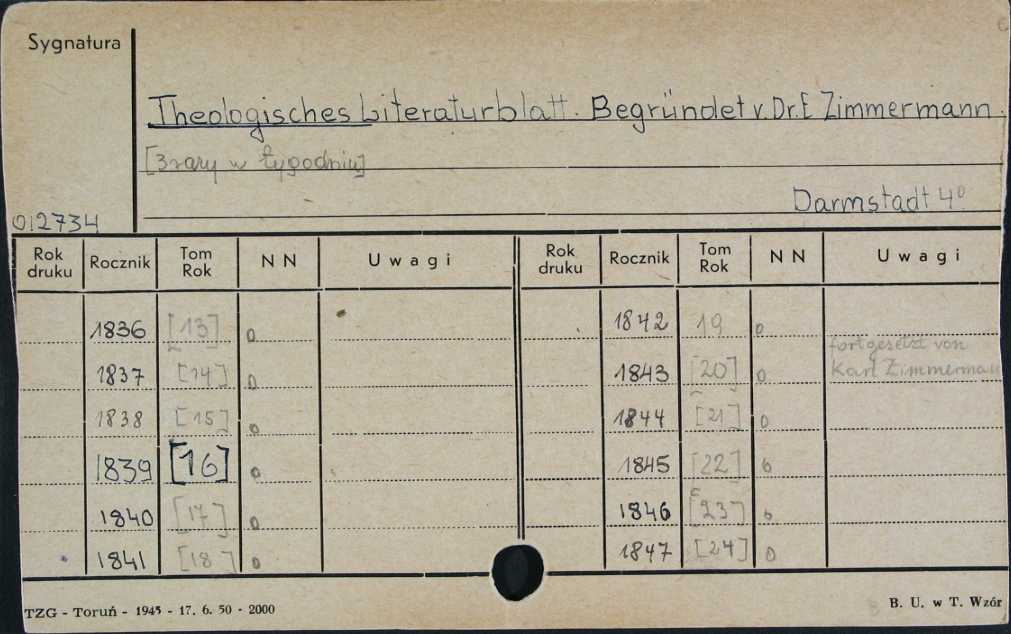 Sygnatura
Theologisches Literaturblatt. Begründet v. Dr. E Zimmermann.
[3 razy w tygodniu]
Darmstadt 4º
012734
Rok druku Rocznik Tom Rok NN Uwagi Rok druku Rocznik Tom Rok NN Uwagi
1836 [13] 0 1842 19 0
fortgesetzt von
1837 [14] 0 1843 [20] 0 Karl Zimmerman
1838 [15] 0 1844 [21] 0
1839 [16] 0 1845 [22] 0
1840 [17] 0 1846 [23] 0
1841 [18] 0 1847 [24] 0
TZG - Toruń - 1945 - 17. 6. 50 - 2000 B. U. w T. Wzór